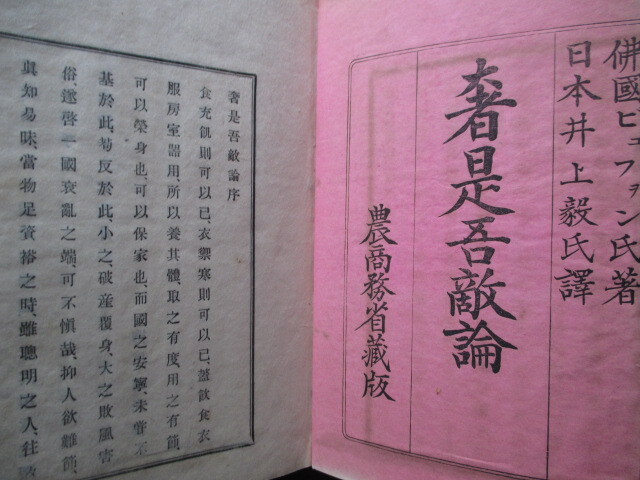 佛國ビュフヲン氏著
日本井上毅氏譯
奢是吾敵論
農商務省藏版
奢是吾敵論序
食充飢則可以已、衣禦寒則可以已、蓋飮食衣
服房室器用、所以養其體、取之有度、用之有節、
可以榮身也、可以保家也、而國之安寧、未嘗不
基於此、苟反於此、小之破産覆身、大之敗風害
俗、遂啓一國衰亂之端、可不愼哉、抑人欲難節、
眞知易昧、當物足資裕之時、雖聰明之人、往